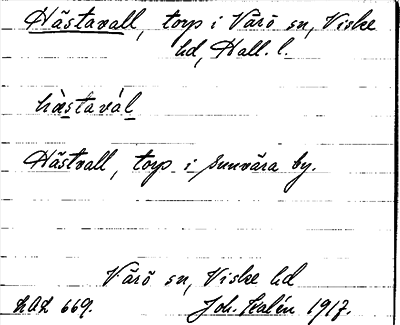 Hästavall, torp i Värö sn, Viske
hd, Hall. l.
hæ̀stavál
Hästvall, torp i Sunvära by.
Värö sn, Viske hd
LAL 669. Joh. Kalén 1917.